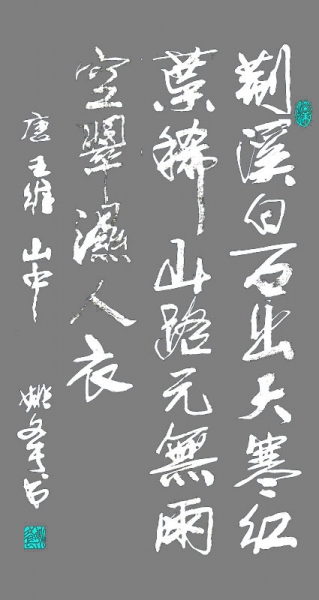 荆溪白石出天寒紅
葉稀山路元無雨
空翠濕人衣
唐王維山中
姚